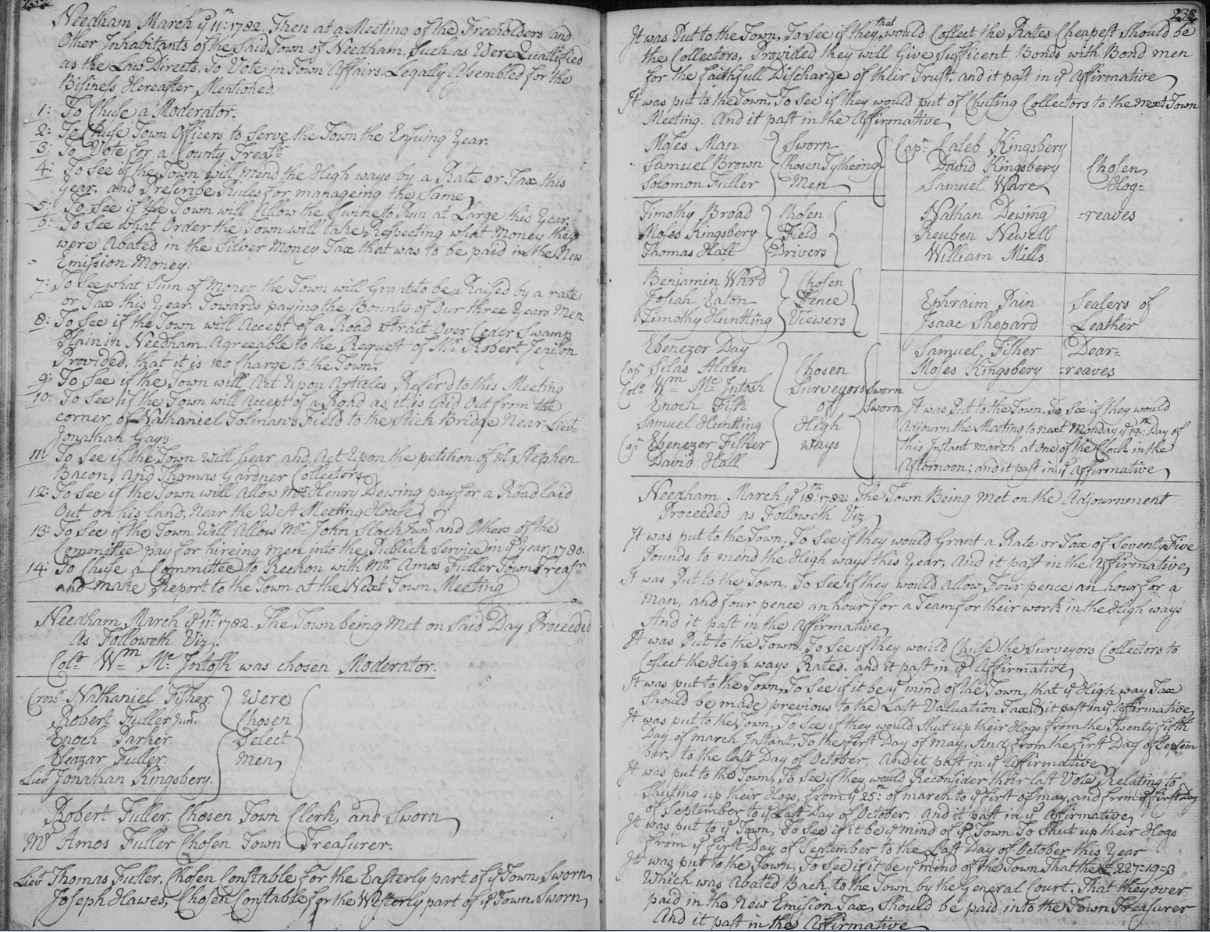 Needham March ye 11th: 1782. Then at a Meeting of the Freeholders and
Other Inhabitants of the Said Town of Needham, Such as Were Quallified
as the Law Directs, To Vote in Town Affairs, Legally Assembled for the
Bisiness Hereafter Mentioned.
1: To Chuse a Moderator.
2: To Chuse Town Officers to Serve the Town the Ensuing Year.
3: To Vote for a County Treasr
4: To See if the Town will mend the High ways by a Rate or Tax this
Year, and Prescribe Rules for manageing the Same
5: To See if the Town will Allow the Swine to Run at Large this Year
6: To See what Order the Town will take Respecting what Money they
were Abated in the Silver Money Tax that was to be paid in the New
Emission Money.
7: To See what Sum of Money the Town will Grant to be Raised by a rate
or Tax this Year. Towards paying the Bounty of Our three Years Men
8: To See if the Town will Accept of a Road Strait Over Ceder Swamp
Plain in Needham. Agreeable to the Request of Mr. Robert Jenison
Provided, that it is no Charge to the Town.
9: To See if the Town will Act Upon Articles Referd to this Meeting
10: To See if the Town will Accept of a Road as it is laid Out from the
corner of Nathaniel Tolman's Field to the Stick Bridge Near Lieut
Jonathan Gays
11: To See if the Town will hear and Act Upon the petition of Mr. Stephen
Bacon, and Thomas Gardner Collectors
12: To See if the Town will Allow Mr. Henry Dewing pay for a Road laid
Out on his land, Near the West Meeting House
13: To See if the Town Will Allow Mr. John Slack Junr and Others of the
Committee pay for hireing men into the Publick Service in ye Year, 1780.
14: To Chuse a Committee to Reckon with Mr. Amos Fuller Town Treasr
and make Report to the Town at the Next Town Meeting
Needham, March ye 11th: 1782. The Town being Met on Said Day Proceeded
As Followeth Viz.
Colo. Wm Mc Intosh was chosen Moderator.
Nathaniel Fisher
Robert Fuller Jun.
Enoch Parker
Eleazar Fuller
Lieut Jonathan Kingsbery.
Were
Chosen
Select
Men
Robert Fuller Chosen Town Clerk, and Sworn
Mr Amos Fuller Chosen Town Treasurer.
Lieut Thomas Fuller, Chosen Constable for the Easterly part of ye Town, Sworn
Joseph Hawes, Chosen Constable for the Westerly part of ye Town, Sworn
238
It was Put to the Town, To See if they that would Collect the Rates Cheapest should be
the Collectors, Provided they will Give Sufficent Bonds with Bond men
for the faithfull Discharge of their Trust; and it past in ye Affirmative
It was put to the Town, To See if they would put of Chusing Collectors to the next Town
Meeting. And it past in the Affirmative
Moses Man
Samuel Brown
Solomon Fuller
Sworn
Chosen Tytheing
Men
Timothy Broad
Moses Kingsbery
Thomas Hall
Chosen
Field
Drivers
Benjamin Ward
Josiah Eaton
Timothy Huntting
Chosen
Fence
Viewers
Ebenezer Day
Cap Silas Alden
Colo. Wm Mc Intosh
Enoch Fisk
Samuel Huntting
Cap Ebenezer Fisher
David Hall
Chosen
Surveyors Sworn
of Sworn
High
ways
Capt Caleb Kingsbery
David Kingsbery
Samuel Ware
Nathan Dewing
Reuben Newell
William Mills
Chosen
Hog=
=reaves
Ephraim Pain
Isaac Shepard
Sealers of
Leather
Samuel Fisher
Moses Kingsbery
Dear=
=reaves
It was Put to the Town, To See if they would
Adjourn the Meeting to next Monday ye Day of
this Instant march at One of the Clock in the
Afternoon; and it past in ye Affirmative
Needham March ye 18th: 1782. The Town Being Met on the Adjournment
Proceeded as Followeth Viz
It was put to the Town, To See if they would Grant a Rate or Tax of Seventy Five
Pounds to mend the High ways this Year, And it past in the Affirmative
It was Put to the Town, To See if they would Allow Four pence an hour for a
Man, and four pence an hour for a Team for their work in the High ways
And it past in the Affirmative
It was Put to the Town, To See if they would Chuse the Surveyors Collectors to
Collect the High ways Rates. and it past in ye Affirmative
It was put to the Town To See if it be ye mind of the Town, that ye High way Tax
Should be made previous to the Last Valuation Tax & it past in ye Affirmative
It was put to the Town, To See if they would Shut up their Hogs from the Twenty fifth
Day of march Instant, To the first Day of May, And from the first Day of Septem
ber, to the Last Day of October. And it past in ye Affirmative
It was put to the Town, To See if they would Reconsider their last Vote, Relating to
Shuting up their Hogs, from ye 25th: of march to ye first of may, and from ye first Day
of September to ye Last Day of October. And it past in ye Affirmative
It was put to ye Town, To See if it be ye mind of ye Town To Shut up their Hogs
From ye first Day of September to the Last Day of October this Year
It was put to the Town, To See if it be ye mind of the Town That the £ 227-19-3
Which was Abated Back to the Town by the General Court. That they over
paid in the New Emision Tax, Should be paid into the Town Treasurer
And it past in the Affirmative